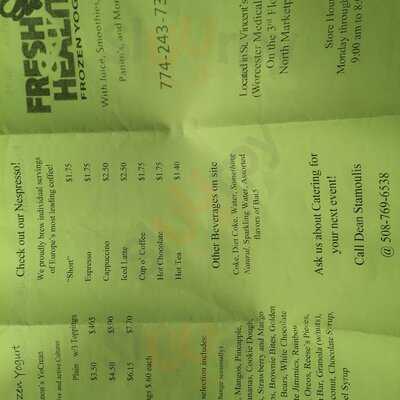 FRESH
& HEAL
FROZEN YOG
With Juice, Smoothies,
Panini's, and Mo
774-243-73
Located in St. Vincent's
(Worcester Medical
On the 3rd Fl
North Marketp
Store Hour
Monday through
9:00 am to 8:
Check out our Nespresso!
We proudly brew individual servings
of Europe's most leading coffee!
"Short" $1.75
Espresso $1.75
Cappuccino $2.50
Iced Latte $2.50
Cup o' Coffee $1.75
Hot Chocolate $1.75
Hot Tea $1.40
Other Beverages on site
Coke, Diet Coke, Water, Something
Natural, Sparkling Water, Assorted
flavors of Bai5
Ask us about Catering for
your next event!
Call Dean Stamoulis
@ 508-769-6538
ozen Yogurt
ont's YoCream
ve and active Cultures
Plain w/3 Toppings
$3.50 $4.65
$4.50 $5.90
$6.15 $7.70
gs $.60 each
selection includes:
hange seasonally)
Mangos, Pineapple,
ananas, Cookie Dough,
Strawberry and Mango
s, Brownie Bites, Golden
Bears, White Chocolate
te Jimmies, Rainbow
Oreos, Reese's Pieces,
Bar, Granola (w/nuts),
conut, Chocolate Syrup,
el Syrup